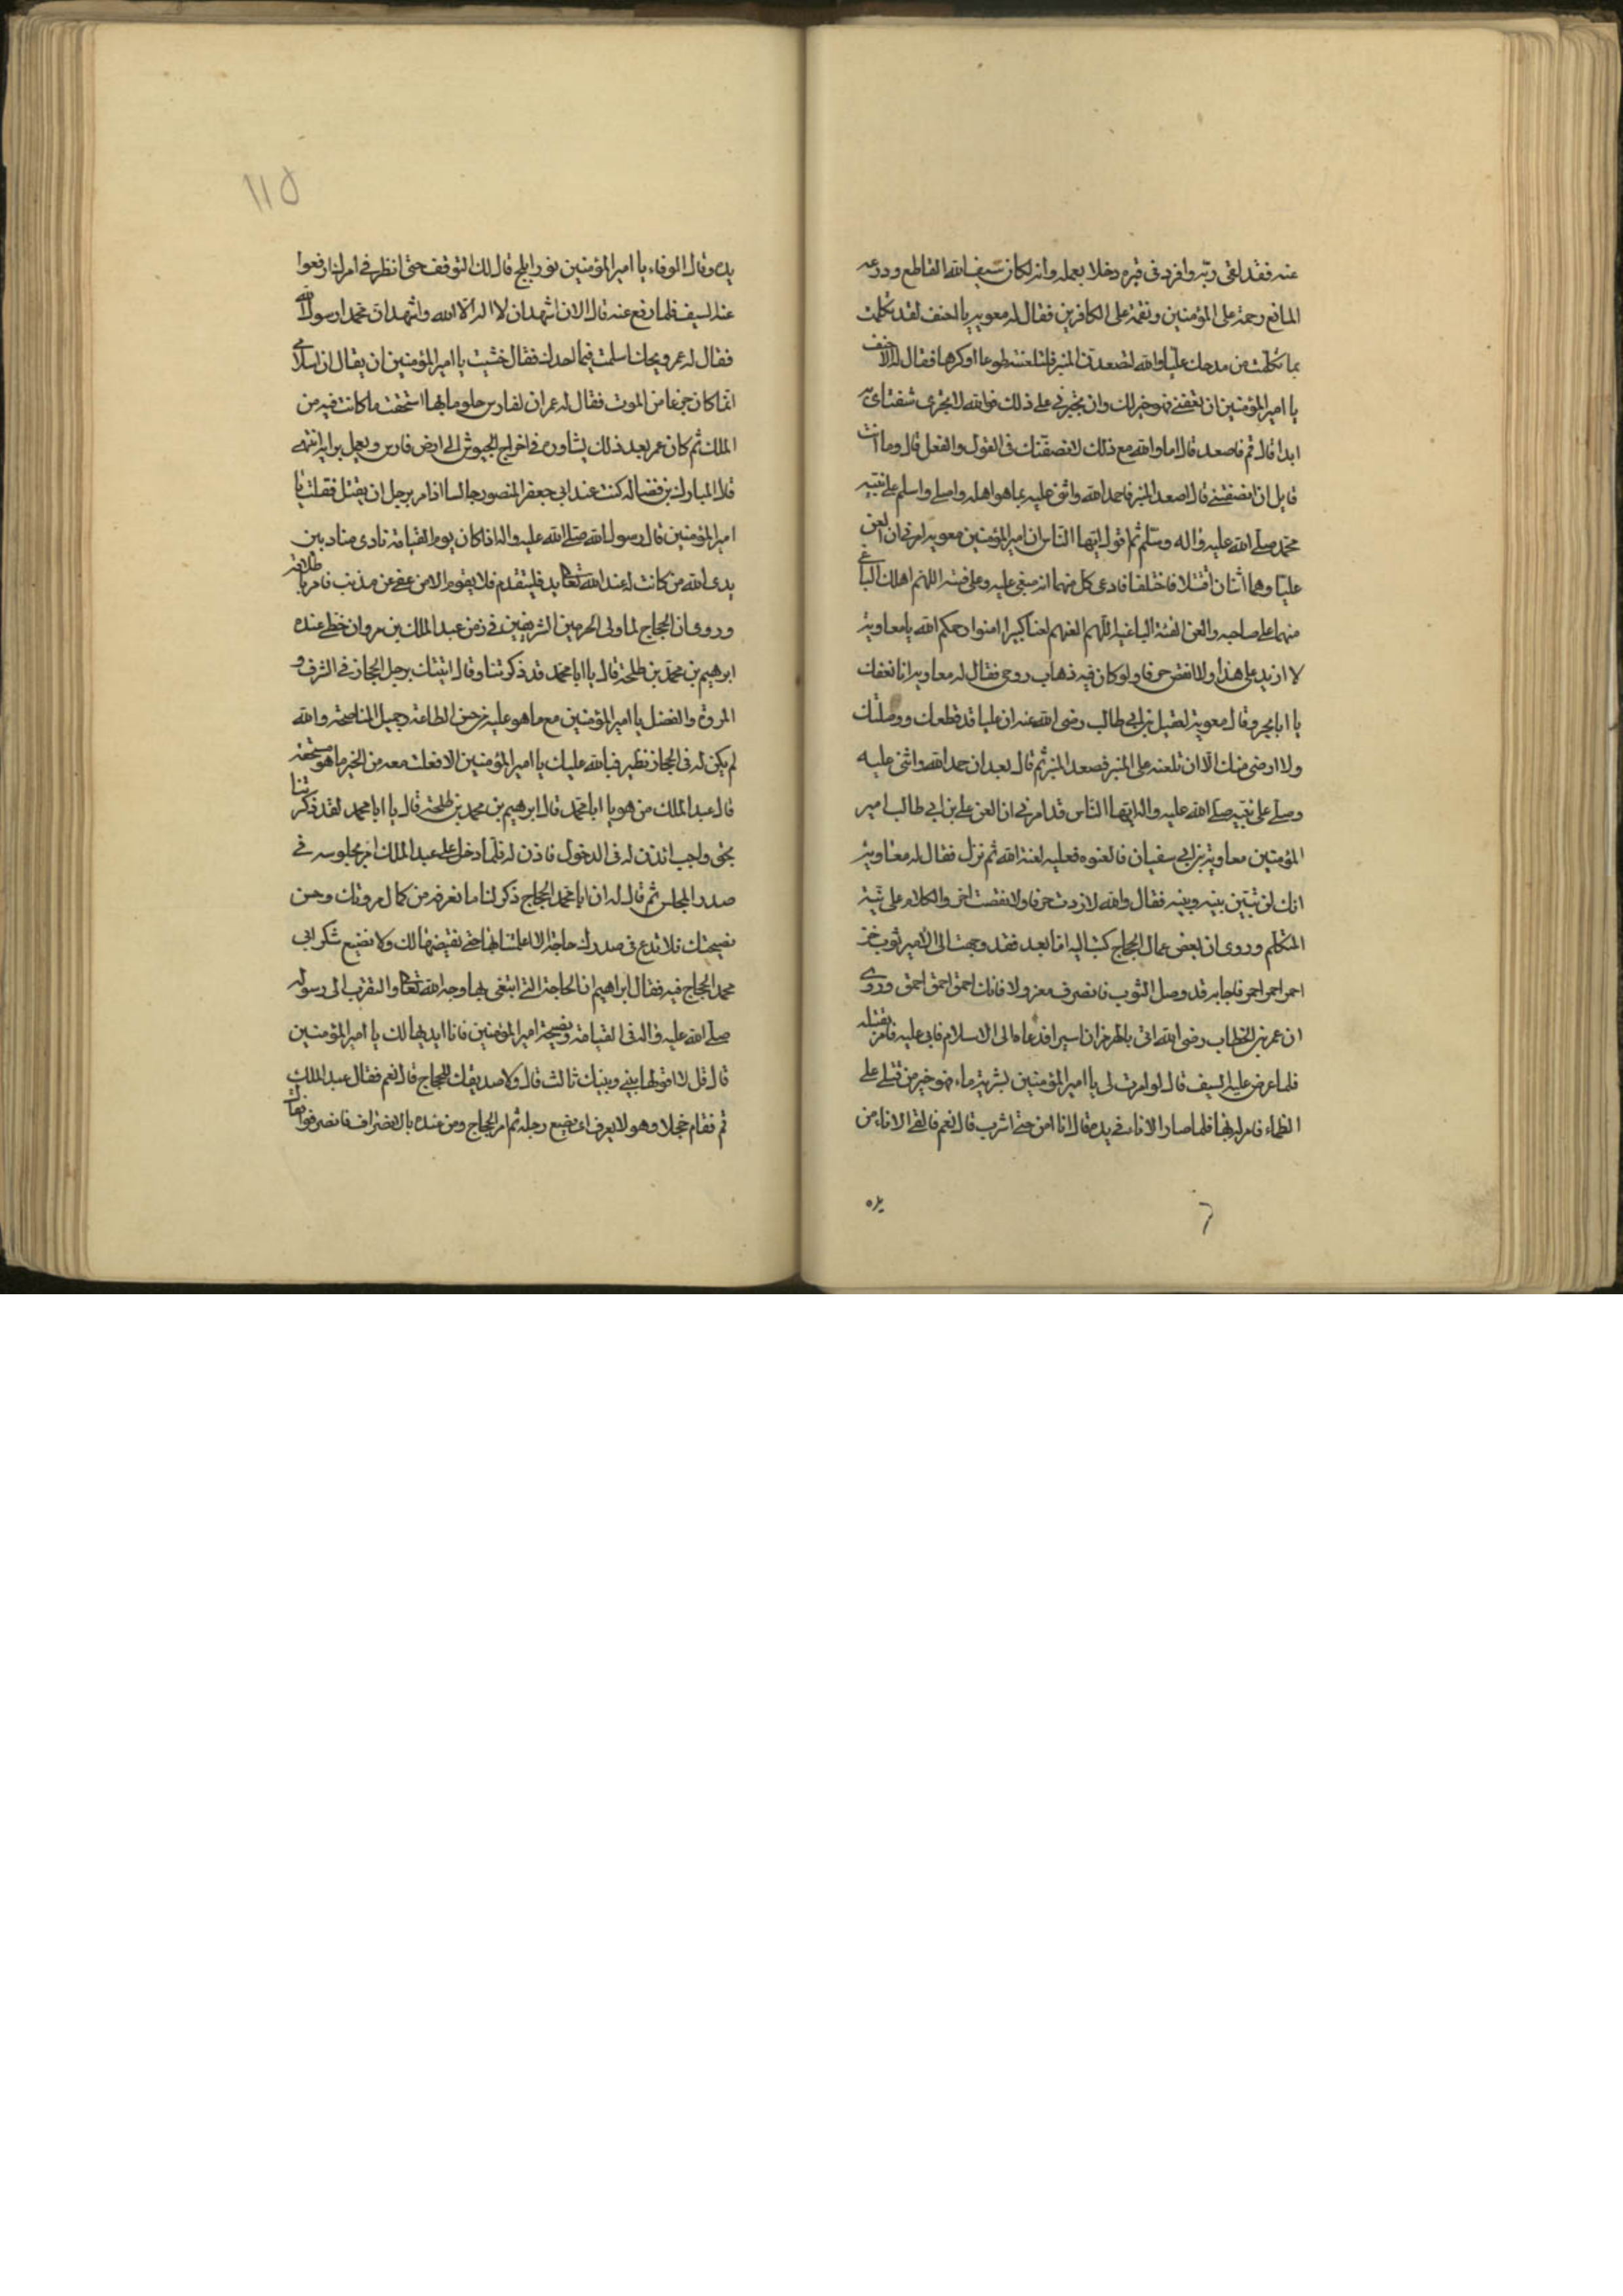 عنه فقد لقى ربّه وافرد فى قبره وخلا بعمله وانه لكان سيف الله القاطع ودرعه
المانع رحمة على المؤمنين ونقمة على الكافرين فقال له معوية يا احنف لقد تكلمت
بما تكلمت من مدحك عليّا والله لتصعدنّ المنبر فلتلعنه طوعا اوكرها فقال له الاحنف
يا امير المؤمنين ان تعفنى فهو خير لك وان تجبرنى على ذلك فوالله لا تجرى شفتاى به
ابدا قال قم فاصعد قال اما والله مع ذلك لانصفنّك فى القول والفعل قال وما انت
قايل ان انصفتنى قال اصعد المنبر فاحمد الله واثنى عليه بما هو اهله واصلى واسلم على نبيّه
محمّد صلّى الله عليه واله وسلّم ثم اقول ايّها النّاس ان امير المؤمنين معوية امرنى ان العن
عليّا وهما اثنان اقتتلا فاختلفا فادعى كل منهما انه مبغى عليه وعلى فيئته اللهم اهلك الباغى
منهما على صاحبه والعن الفئة الباغية اللّهم العنهم لعنا كبيرا امنوا رحمكم الله يا معاوية
لا ازيد على هذا ولا انقص حرفا ولو كان فيه ذهاب روحى فقال له معاوية اذا نعفك
يا ابا بحر وقال معوية لعقيل بن ابى طالب رضى الله عنه ان عليا قد قطعك ووصلتك
ولا ارضى منك الّا ان تلعنه على المنبر فصعد المنبر ثم قال بعد ان حمد الله واثنى عليه
وصلّى على نبيّه صلى الله عليه واله ايّها النّاس قد امرنى ان العن على بن ابى طالب امير
المؤمنين معاوية بن ابى سفيان فالعنوه فعليه لعنة الله ثم نزل فقال له معاوية
انك لن تبيّن بينه وبينه فقال والله لا زدت حرفا ولا نقصت اخر والكلام على نيّة
المتكلم وروى ان بعض عمال الحجاج كتب اليه اما بعد فقد وجهت الى الامير ثوب خز
احمر احمر احمر فاجابه قد وصل الثوب فانصرف معزولا فانك احمق احمق احمق وروى
ان عمر بن الخطاب رضى الله اتى بالهرمزان اسيرا فدعاه الى الاسلام فابى عليه فامر بقتله
فلما عرض عليه السيف قال لو امرت لى يا امير المؤمنين بشربة ماء فهو خير من قتلى على
الظماء فامر له بها فلما صار الاناء فى يده قال انا امن حتى اشرب قال نعم فالقى الاناء من
يده
١١٥
يده وقال الوفاء يا امير المؤمنين نور ابلج قال لك التوقف حتى انظر فى امرك ارفعوا
عنه السيف فلما رفع عنه قال الان اشهد ان لا اله الّا الله واشهد انّ محمدا رسول الله
فقال له عمر ويحك اسلمت فيما احدك فقال خشيت يا امير المؤمنين ان يقال ان اسلامى
انما كان جزعا من الموت فقال له عمر ان لفارس حلوما بها استحقت ما كانت فيه من
الملك ثم كان عمر بعد ذلك يشاوره فى اخراج الجيوش الى ارض فارس ويعمل برايه انتهى
قال المبارك بن فضاله كنت عند ابى جعفر المنصور جالسا اذ امر برجل ان يقتل فقلت يا
امير المؤمنين قال رسول الله صلّى الله عليه واله اذا كان يوم القيامة نادى مناد بين
يدى الله من كانت له عند الله تعالى يد فليتقدم فلا يقوم الا من عفى عن مذنب فامر باطلاقه
وروى ان الحجاج لما ولى الحرمين الشريفين فى زمن عبد الملك بن مروان حظى عنده
ابرهيم بن محمد بن طلحة قال يا ابا محمّد قد ذكرتنا وقال اتيتك برجل الحجاز فى الشرف و
المروة والفضل يا امير المؤمنين مع ما هو عليه من حسن الطاعة وجميل المناصحة والله
لم يكن له فى الحجاز نظير فبالله عليك يا امير المؤمنين الا فعلت معه من الخير ما هو مستحقه
قال عبد الملك من هو يا ابا محمّد قال ابرهيم بن محمد بن طلحة قال يا ابا محمد لقد ذكرتنا
بحق واجب ائذن له فى الدخول فاذن له فلما دخل على عبد الملك امر بجلوسه فى
صدر المجلس ثم قال له ان ابا محمّد الحجاج ذكر لنا ما نعرفه من كمال مروتك وحسن
نصيحتك فلا تدع فى صدرك حاجة الا اعلمتنا بها حتى نقيضها لك ولا نضيع شكر ابى
محمد الحجاج فيه فقال ابراهيم ان الحاجة التى ابتغى بها وجه الله تعالى والتقرب الى رسوله
صلّى الله عليه واله فى القيامة ونصيحة امير المؤمنين فانا ابديها لك يا امير المؤمنين
قال قل لا اقولها بينى وبينك ثالث قال ولا صديقك الحجاج قال نعم فقال عبد الملك
قم فقام خجلا وهو لا يعرف اى يضع رجله ثم امر الحجاج ومن عنده بالانضراف فانصرفوا